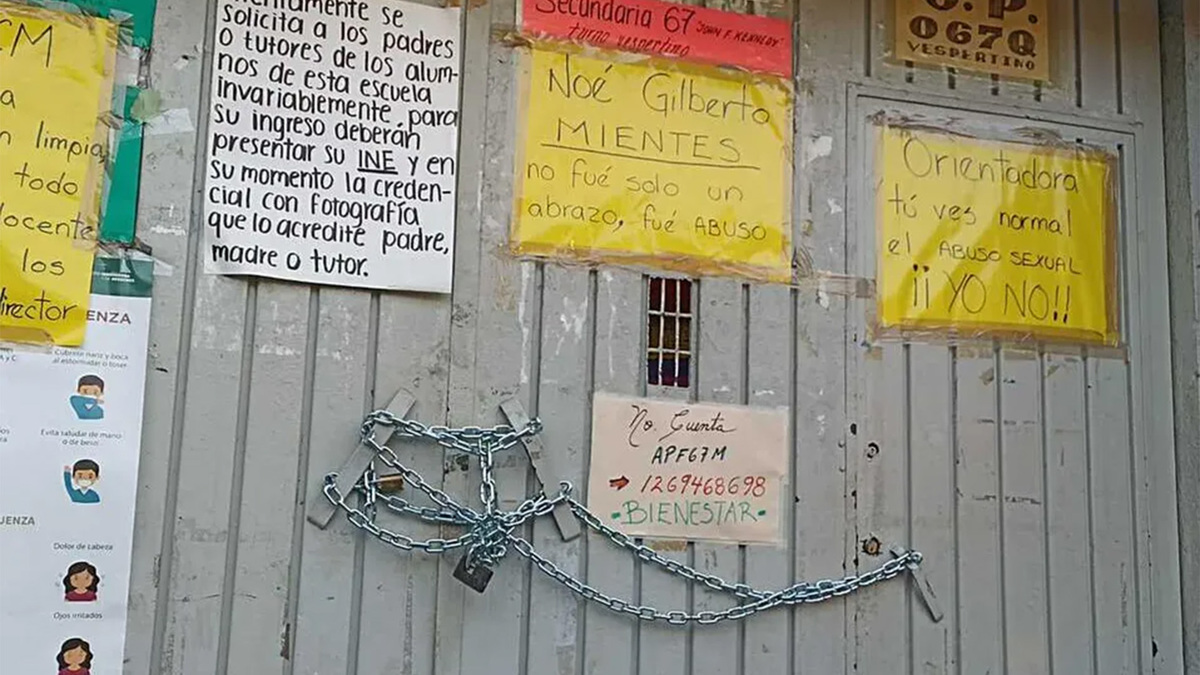 CM
a
limpia,
todo
docente
los
director
ENZA
Cubrete nariz y boca
al estornudar o toser
A y C
Evita saludar de mano
o de beso
UENZA
Dolor de cabeza
Ojos irritados
se
solicita a los padres
o tutores de los alum-
nos de esta escuela
invariablemente para
su ingreso deberán
presentar su INE y en
su momento la creden-
cial con fotografía
que lo acredite padre,
madre o tutor.
Secundaria 67 "JOHN F. KENNEDY"
turno vespertino
Noé Gilberto
MIENTES
no fué solo un
abrazo, fué ABUSO
No. Cuenta
APF67M
→ 1269468698
-BIENESTAR-
C.P.
067Q
VESPERTINO
Orientadora
tú ves normal
el ABUSO SEXUAL
¡¡ YO NO!!